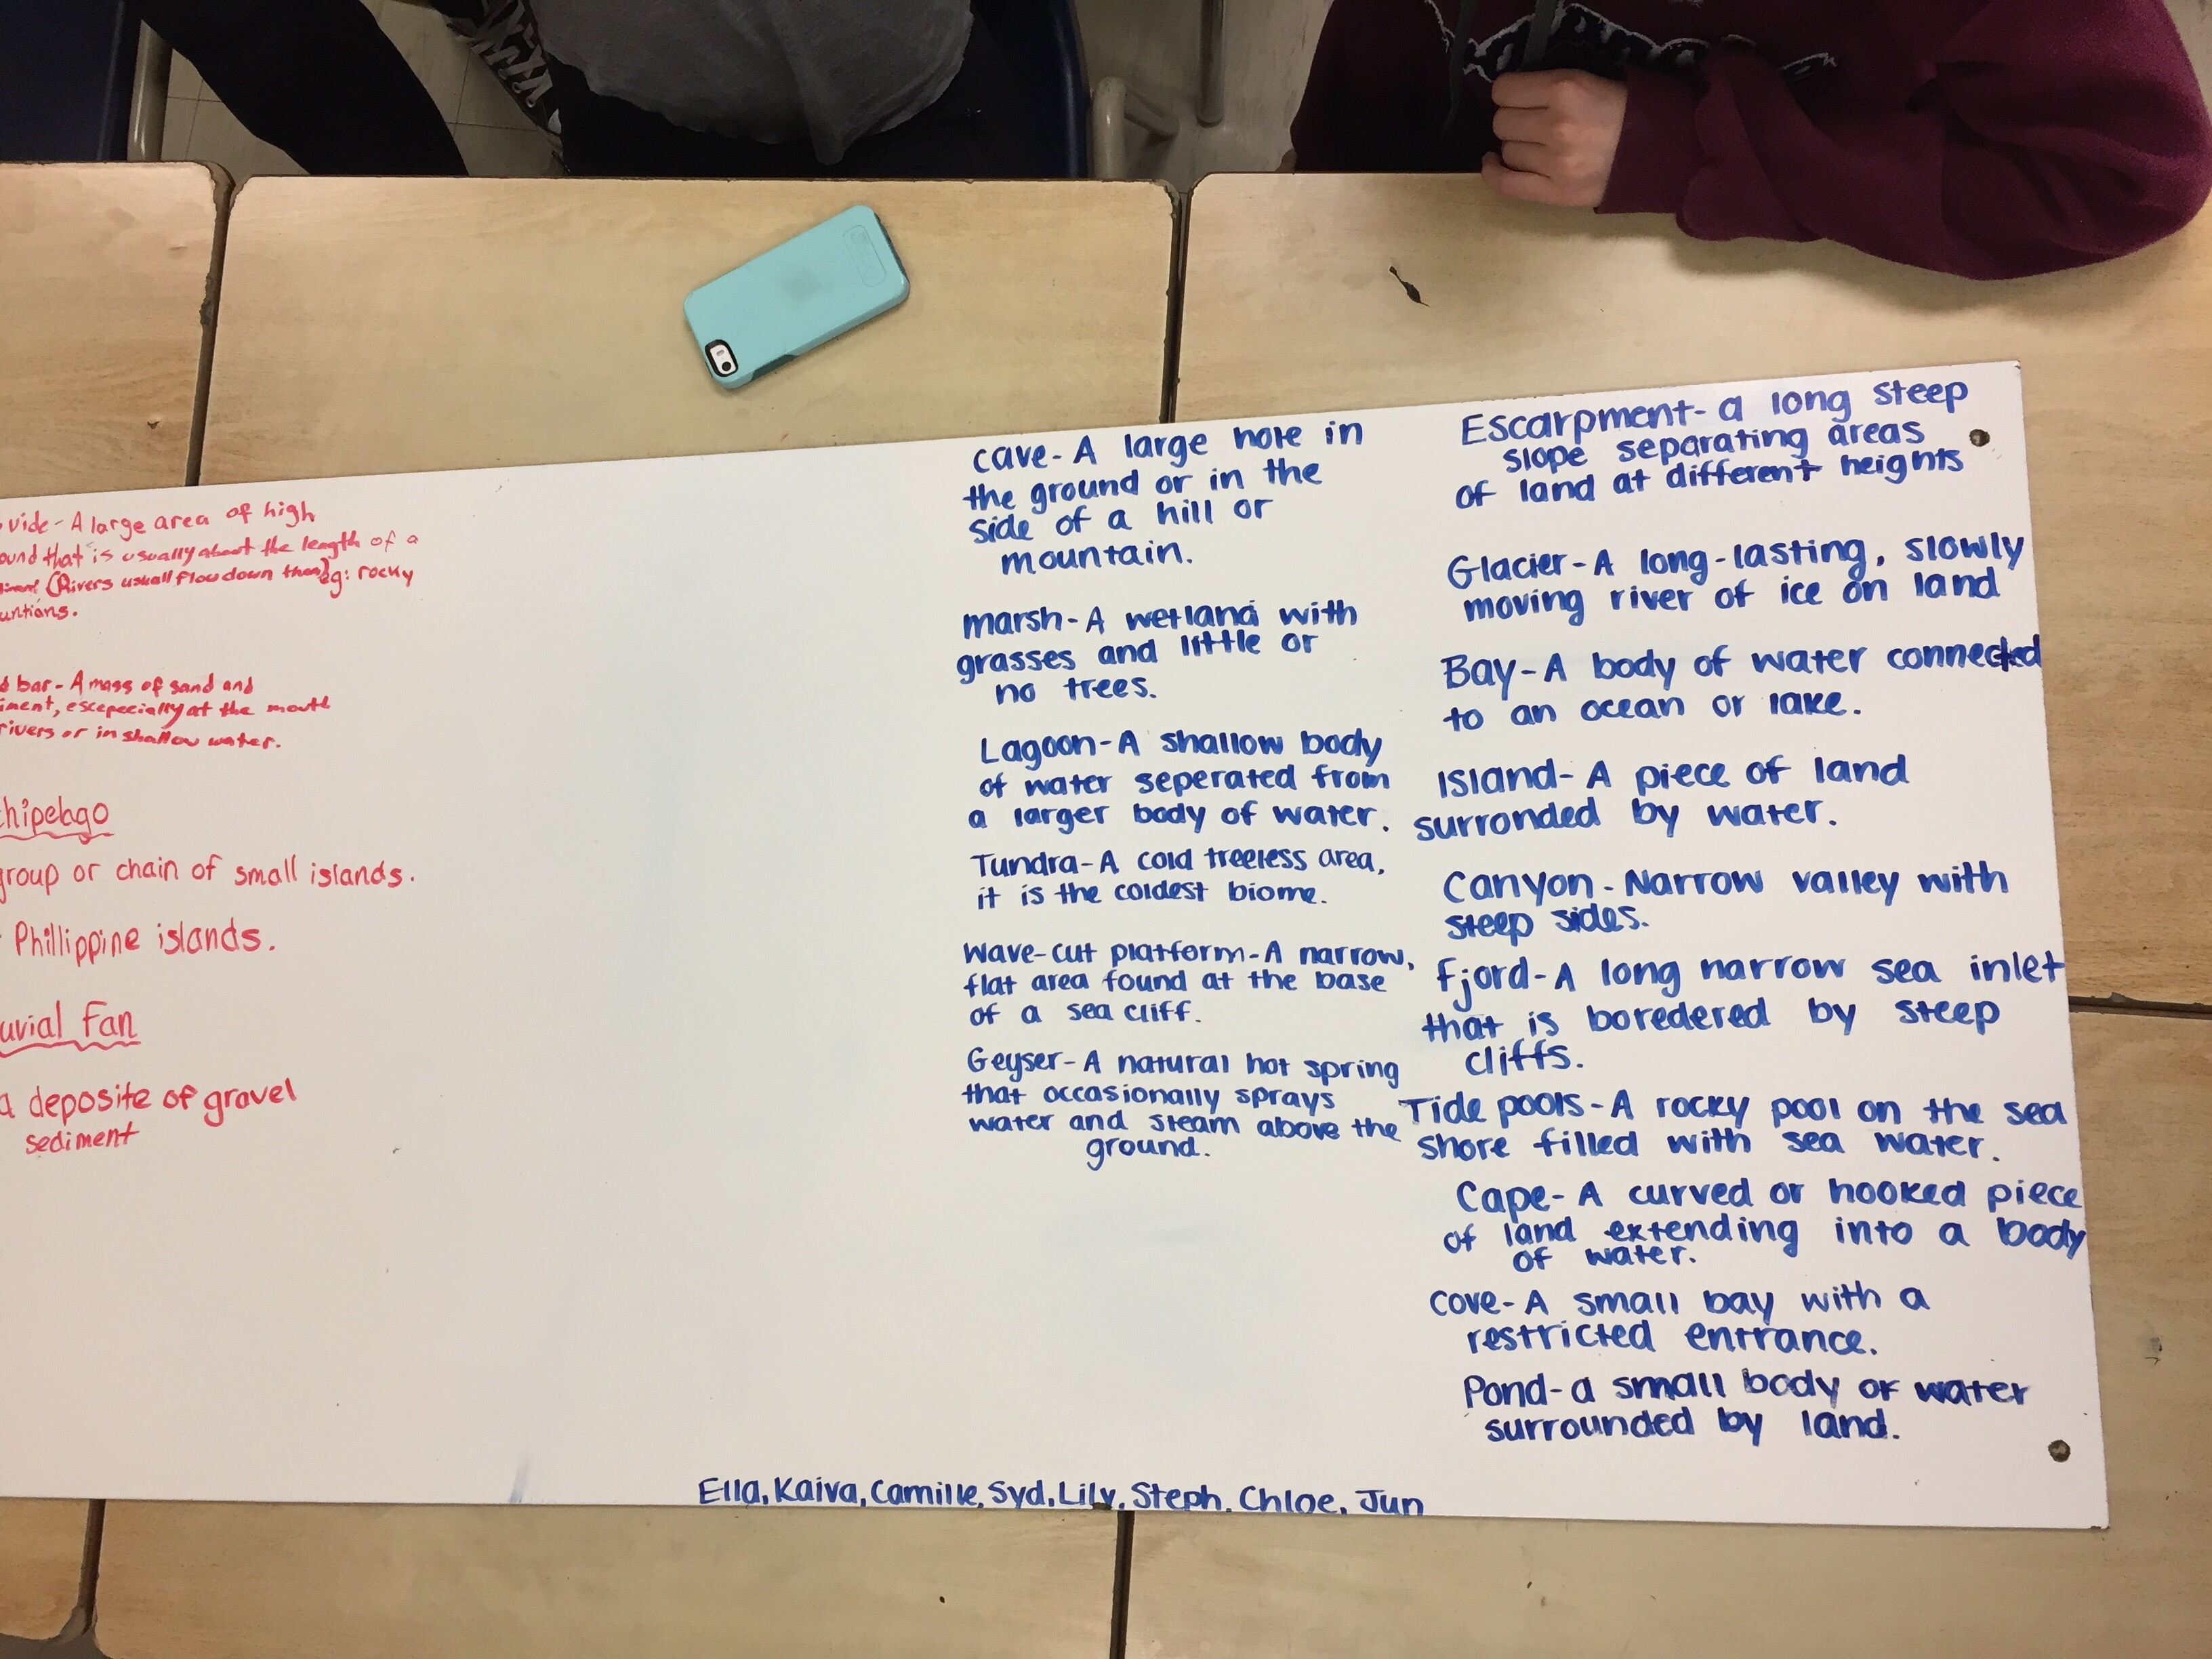 vide- A large area of high
ound that is usually about the length of a
(Rivers usuall flow down them) eg: rocky
untians.
bar- A mass of sand and
iment, escepecially at the mouth
rivers or in shallow water.
hipelago
group or chain of small islands.
Phillippine islands.
uvial Fan
a deposite of gravel
sediment
cave- A large hole in
the ground or in the
side of a hill or
mountain.
marsh- A wetland with
grasses and little or
no trees.
Lagoon- A shallow body
of water seperated from
a larger body of water.
Tundra- A cold treeless area,
it is the coldest biome.
Wave-cut platform- A narrow,
flat area found at the base
of a sea cliff.
Geyser- A natural hot spring
that occasionally sprays
water and steam above the
ground.
Escarpment- a long steep
slope separating areas
of land at different heights
Glacier- A long-lasting, slowly
moving river of ice on land
Bay- A body of water connected
to an ocean or lake.
Island- A piece of land
surronded by water.
Canyon- Narrow valley with
steep sides.
fjord- A long narrow sea inlet
that is boredered by steep
cliffs.
Tide pools- A rocky pool on the sea
shore filled with sea water.
Cape- A curved or hooked piece
of land extending into a body
of water.
cove- A small bay with a
restricted entrance.
Pond- a small body of water
surrounded by land.
Ella, Kaiva, Camille, Syd, Lily, Steph, Chloe, Jun